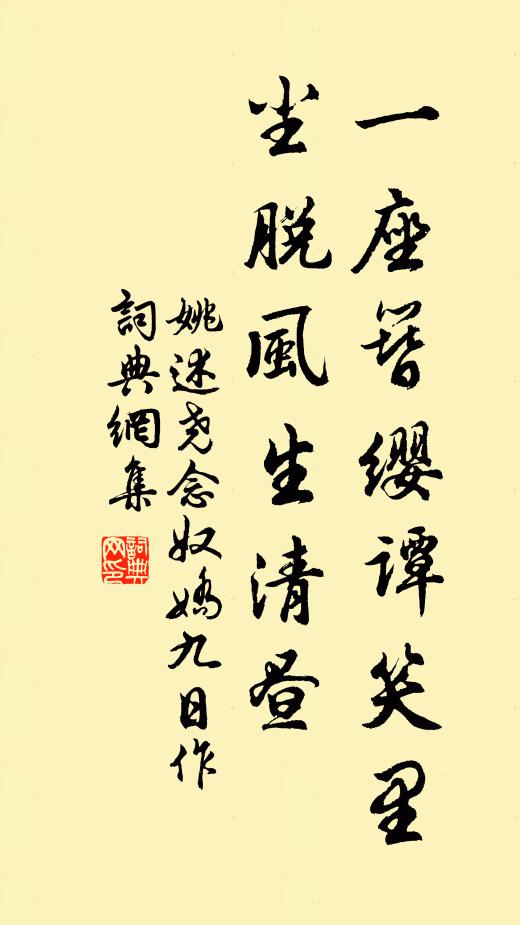 一座簪缨谭笑里
尘脱風生清昼
姚述尧念奴嬌九日作
詞典網集
詞典网印